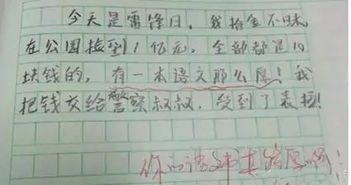 今天是雷锋日，我拾金不昧，
在公园捡到1亿元，全部都是10
块钱的，有一本语文那么厚！我
把钱交给警察叔叔，受到了表扬！
你的语文书真厚啊！